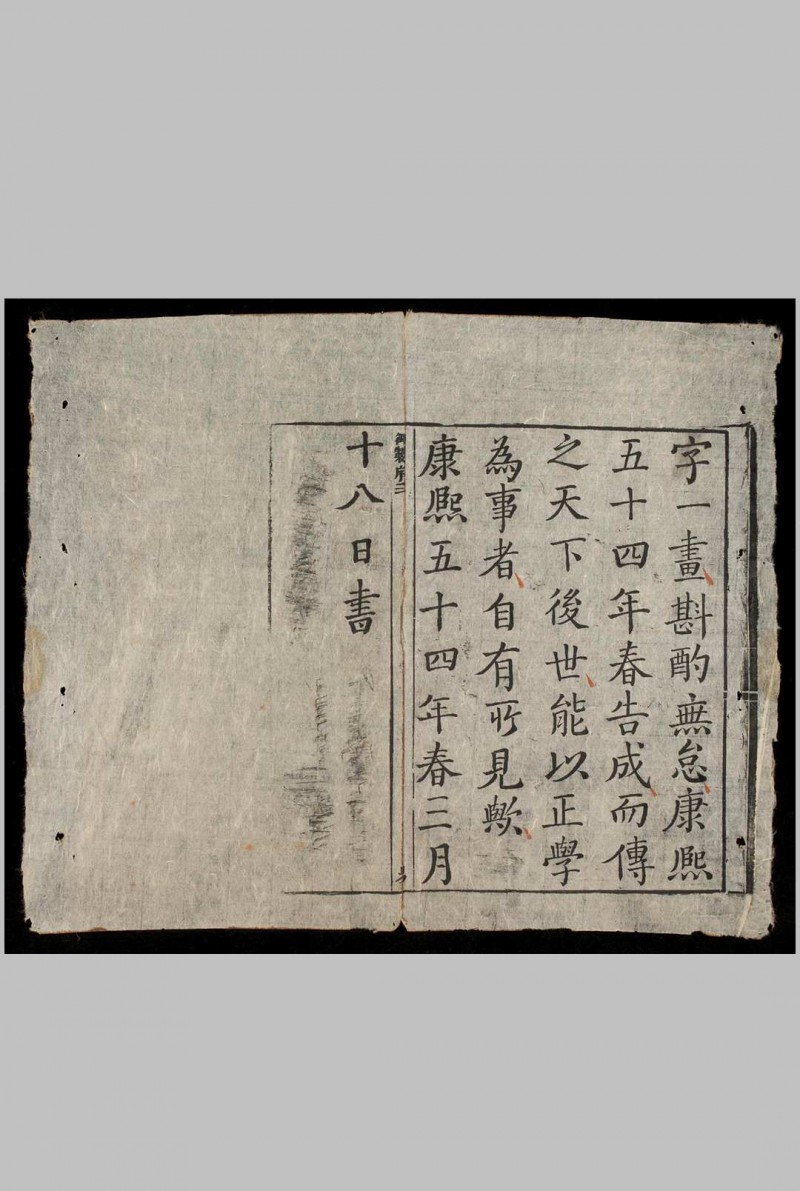 字一畫斟酌無怠康熈
五十四年春告成而傳
之天下後世能以正學
為事者自有所見歟
康熈五十四年春三月
御製序三
十八日書